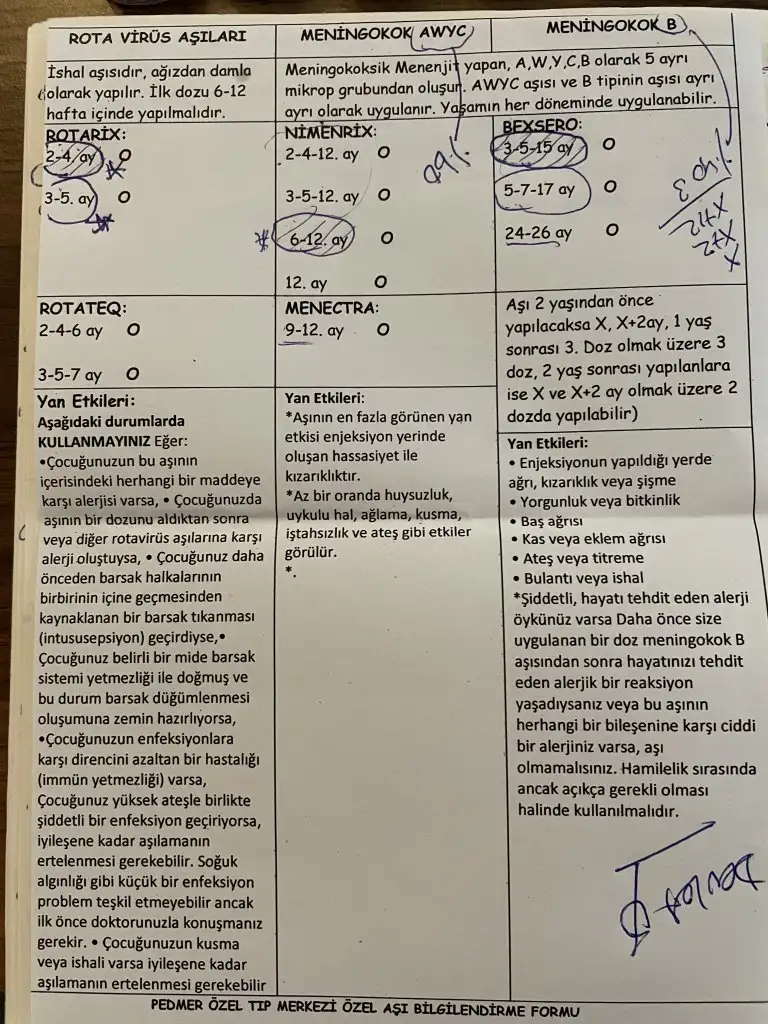 ROTA VİRÜS AŞILARI
MENİNGOKOK AWYC
MENİNGOKOK B
İshal aşısıdır, ağızdan damla
olarak yapılır. İlk dozu 6-12
hafta içinde yapılmalıdır.
Meningokoksik Menenjit yapan, A,W,Y,C,B olarak 5 ayrı
mikrop grubundan oluşur. AWYC aşısı ve B tipinin aşısı ayrı
ayrı olarak uygulanır. Yaşamın her döneminde uygulanabilir.
ROTARİX:
2-4. ay O
3-5. ay O
NİMENRİX:
2-4-12. ay O
3-5-12. ay O
6-12. ay O
12. ay O
BEXSERO:
3-5-15 ay O
5-7-17 ay O
24-26 ay O
X
X+2
X+12
ROTATEQ:
2-4-6 ay O
3-5-7 ay O
MENECTRA:
9-12. ay O
Aşı 2 yaşından önce
yapılacaksa X, X+2ay, 1 yaş
sonrası 3. Doz olmak üzere 3
doz, 2 yaş sonrası yapılanlara
ise X ve X+2 ay olmak üzere 2
dozda yapılabilir)
Yan Etkileri:
Aşağıdaki durumlarda
KULLANMAYINIZ Eğer:
•Çocuğunuzun bu aşının
içerisindeki herhangi bir maddeye
karşı alerjisi varsa, • Çocuğunuzda
aşının bir dozunu aldıktan sonra
veya diğer rotavirüs aşılarına karşı
alerji oluştuysa, • Çocuğunuz daha
önceden barsak halkalarının
birbirinin içine geçmesinden
kaynaklanan bir barsak tıkanması
(intususepsiyon) geçirdiyse,•
Çocuğunuz belirli bir mide barsak
sistemi yetmezliği ile doğmuş ve
bu durum barsak düğümlenmesi
oluşumuna zemin hazırlıyorsa,
•Çocuğunuzun enfeksiyonlara
karşı direncini azaltan bir hastalığı
(immün yetmezliği) varsa,
Çocuğunuz yüksek ateşle birlikte
şiddetli bir enfeksiyon geçiriyorsa,
iyileşene kadar aşılamanın
ertelenmesi gerekebilir. Soğuk
algınlığı gibi küçük bir enfeksiyon
problem teşkil etmeyebilir ancak
ilk önce doktorunuzla konuşmanız
gerekir. • Çocuğunuzun kusma
veya ishali varsa iyileşene kadar
aşılamanın ertelenmesi gerekebilir
Yan Etkileri:
*Aşının en fazla görünen yan
etkisi enjeksiyon yerinde
oluşan hassasiyet ile
kızarıklıktır.
*Az bir oranda huysuzluk,
uykulu hal, ağlama, kusma,
iştahsızlık ve ateş gibi etkiler
görülür.
*.
Yan Etkileri:
• Enjeksiyonun yapıldığı yerde
ağrı, kızarıklık veya şişme
• Yorgunluk veya bitkinlik
• Baş ağrısı
• Kas veya eklem ağrısı
• Ateş veya titreme
• Bulantı veya ishal
*Şiddetli, hayatı tehdit eden alerji
öykünüz varsa Daha önce size
uygulanan bir doz meningokok B
aşısından sonra hayatınızı tehdit
eden alerjik bir reaksiyon
yaşadıysanız veya bu aşının
herhangi bir bileşenine karşı ciddi
bir alerjiniz varsa, aşı
olmamalısınız. Hamilelik sırasında
ancak açıkça gerekli olması
halinde kullanılmalıdır.
PEDMER ÖZEL TIP MERKEZİ ÖZEL AŞI BİLGİLENDİRME FORMU